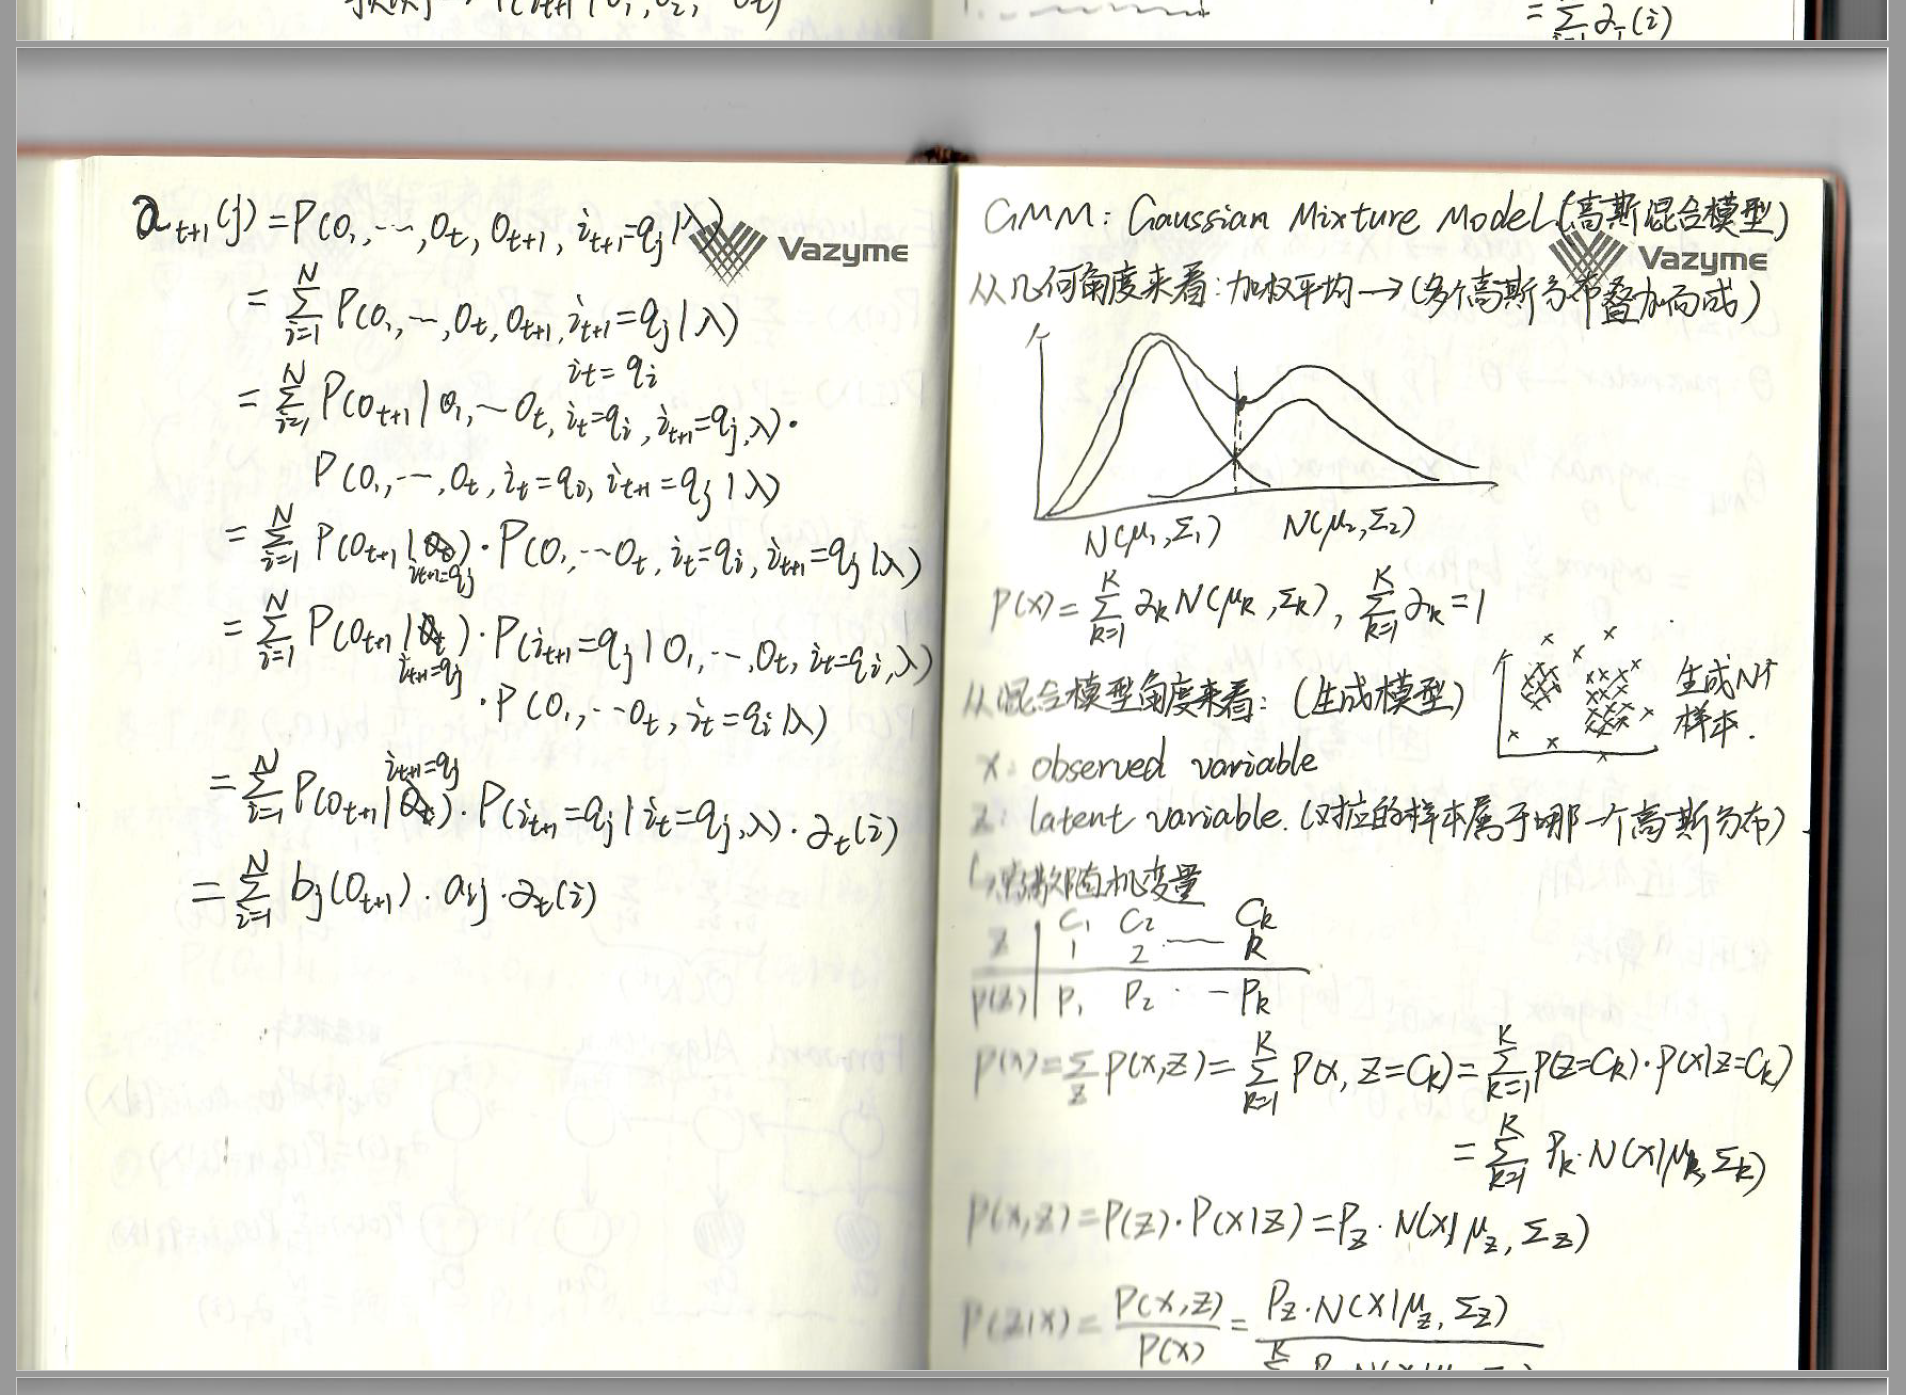 = Σ_{i=1} α_T(i)
α_{t+1}(j) = P(O_1, ⋯, O_t, O_{t+1}, i_{t+1}=q_j | λ)
Vazyme
= Σ_{i=1}^{N} P(O_1, ⋯, O_t, O_{t+1}, i_{t+1}=q_j | λ)
i_t = q_i
= Σ_{i=1}^{N} P(O_{t+1} | O_1, ⋯ O_t, i_t=q_i, i_{t+1}=q_j, λ) ·
P(O_1, ⋯, O_t, i_t=q_i, i_{t+1}=q_j | λ)
= Σ_{i=1}^{N} P(O_{t+1} | i_{t+1}=q_j) · P(O_1, ⋯ O_t, i_t=q_i, i_{t+1}=q_j | λ)
= Σ_{i=1}^{N} P(O_{t+1} | i_{t+1}=q_j) · P(i_{t+1}=q_j | O_1, ⋯, O_t, i_t=q_i, λ)
· P(O_1, ⋯ O_t, i_t=q_i | λ)
= Σ_{i=1}^{N} P(O_{t+1} | i_{t+1}=q_j) · P(i_{t+1}=q_j | i_t=q_j, λ) · α_t(i)
= Σ_{i=1}^{N} b_j(O_{t+1}) · a_{ij} · α_t(i)
GMM: Gaussian Mixture Model (高斯混合模型)
Vazyme
从几何角度来看: 加权平均 → (多个高斯分布叠加而成)
N(μ_1, Σ_1) N(μ_2, Σ_2)
P(x) = Σ_{k=1}^{K} α_k N(μ_k, Σ_k), Σ_{k=1}^{K} α_k = 1
从混合模型角度来看: (生成模型)
生成N个
样本.
x: observed variable
z: latent variable. (对应的样本属于哪一个高斯分布)
离散随机变量
C_1 C_2 C_k
z | 1 2 ⋯ k
p(z) | P_1 P_2 ⋯ P_k
P(x) = Σ_z P(x,z) = Σ_{k=1}^{K} P(x, z=C_k) = Σ_{k=1}^{K} P(z=C_k) · P(x|z=C_k)
= Σ_{k=1}^{K} P_k · N(x|μ_k, Σ_k)
P(x,z) = P(z) · P(x|z) = P_z · N(x|μ_z, Σ_z)
P(z|x) = P(x,z) / P(x) = P_z · N(x|μ_z, Σ_z)